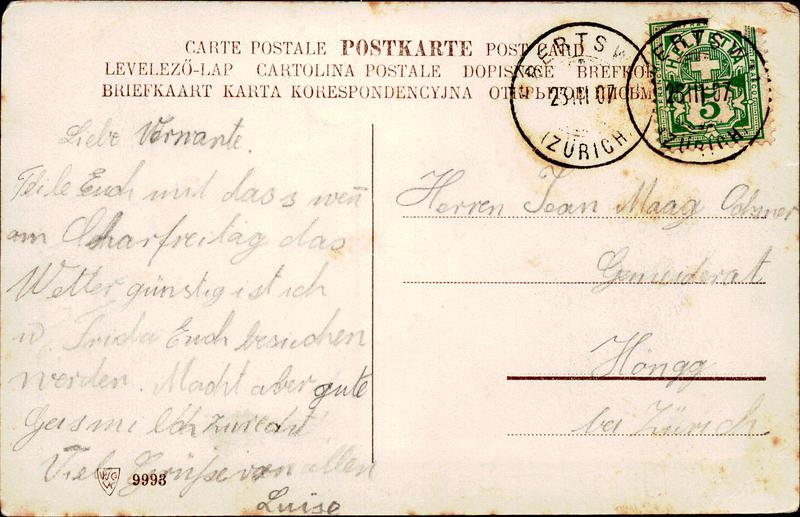 CARTE POSTALE POSTKARTE POST CARD
LEVELEZŐ-LAP CARTOLINA POSTALE DOPISNICE BREFKO
BRIEFKAART KARTA KORESPONDENCYJNA ОТКРЫТОЕ ПИСЬМ
23.III.07
ZÜRICH
23.III.07
ZÜRICH
HELVETIA
5
Liebe Verwante.
Teile Euch mit dass wen̄
am Charfreitag das
Wetter günstig ist ich
u. Frida Euch besuchen
werden. Macht aber gute
zurecht
Viele Grüsse von allen
Luise
Herren Jean Maag Ochsner
Gemeiderat
Höngg
bei Zürich
9993